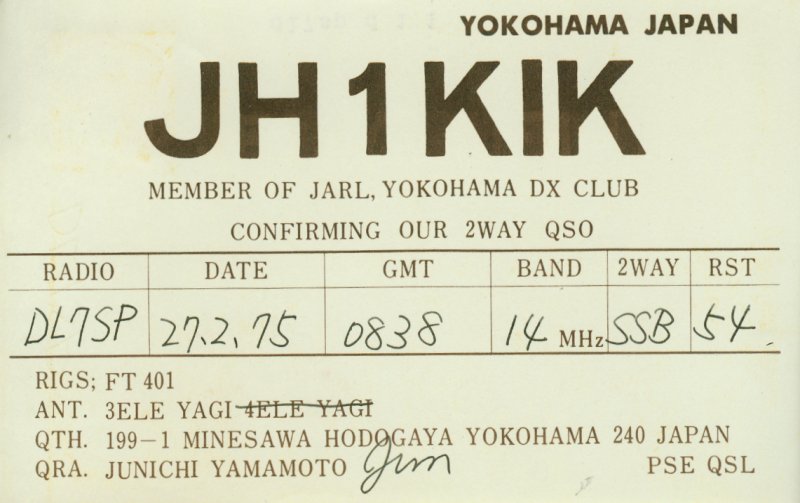 YOKOHAMA JAPAN
JH1KIK
MEMBER OF JARL, YOKOHAMA DX CLUB
CONFIRMING OUR 2WAY QSO
RADIO DATE GMT BAND 2WAY RST
DL7SP 27.2.75 0838 14 MHz SSB 54
RIGS; FT 401
ANT. 3ELE YAGI 4ELE YAGI
QTH. 199-1 MINESAWA HODOGAYA YOKOHAMA 240 JAPAN
QRA. JUNICHI YAMAMOTO Jun PSE QSL